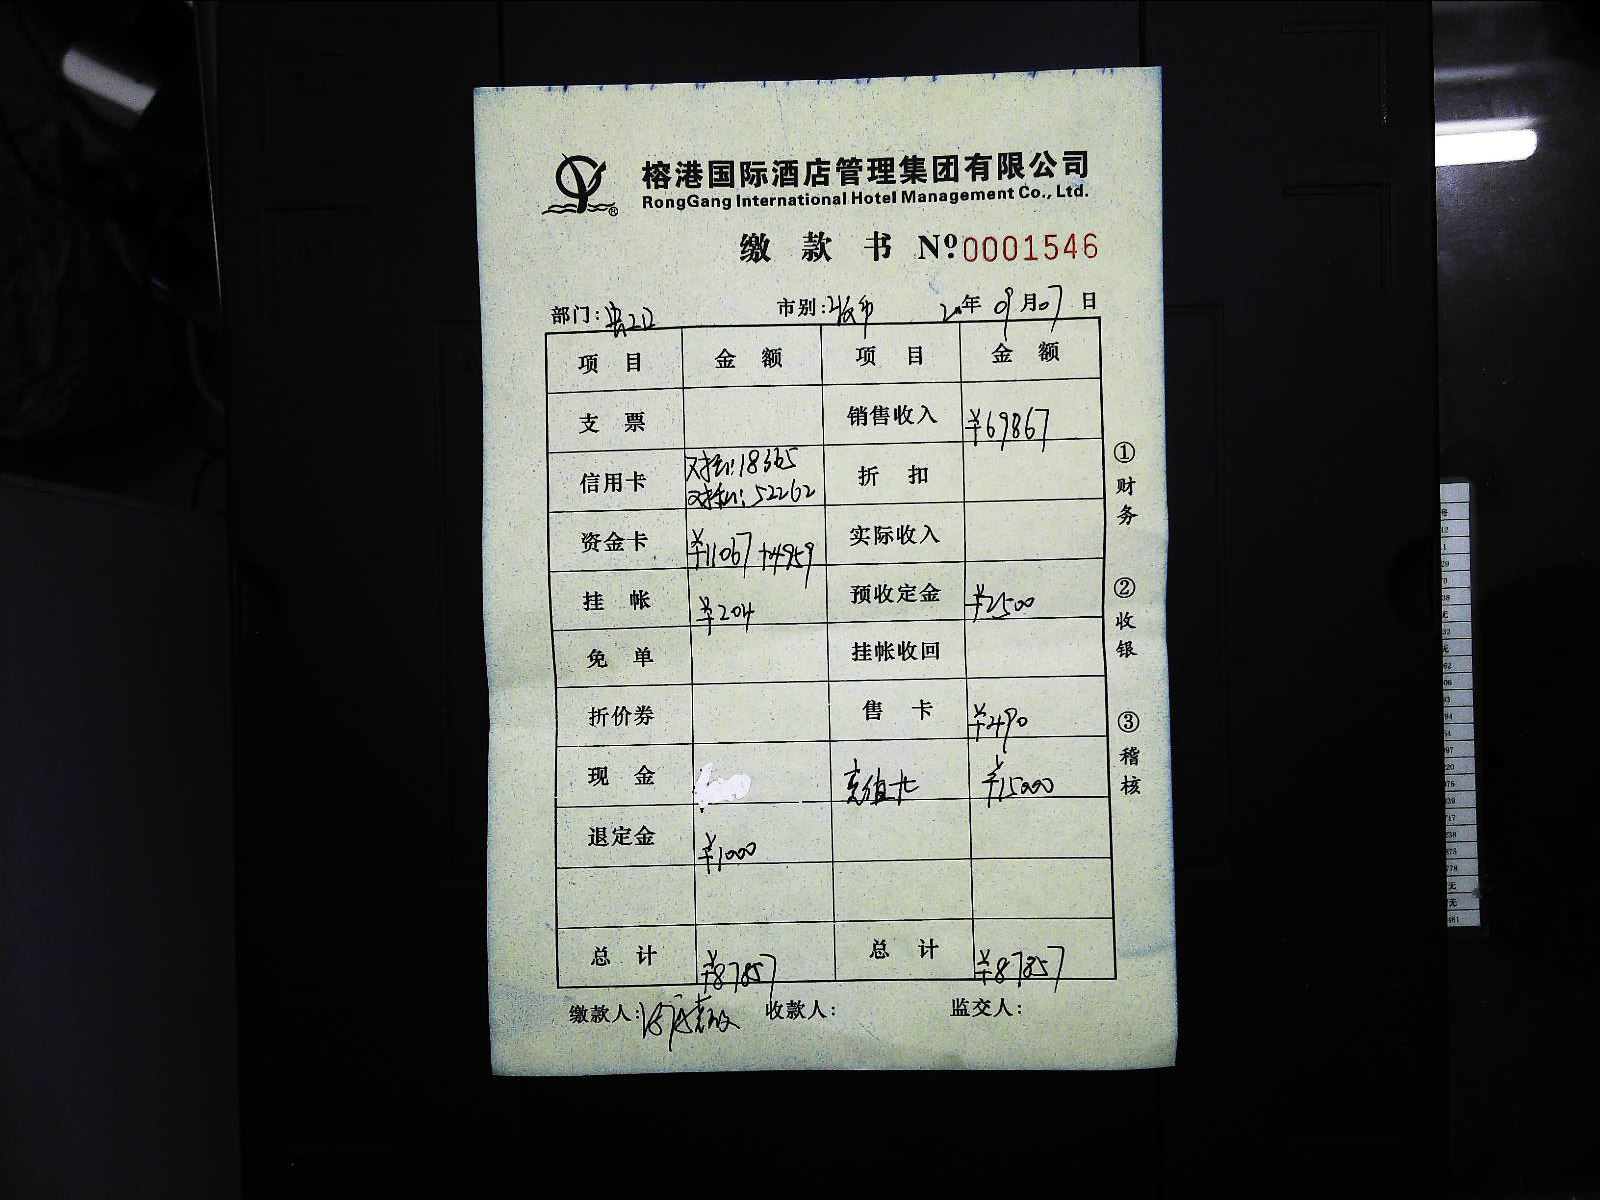 榕港国际酒店管理集团有限公司
RongGang International Hotel Management Co., Ltd.
缴 款 书 Nº.0001546
部门: 市别: 年 09 月 07 日
项 目 金 额 项 目 金 额
支 票 销售收入 ¥69867
信用卡 :18365 :52262 折 扣
资金卡 ¥11067+4959 实际收入
挂 帐 ¥204 预收定金 ¥2500
免 单 挂帐收回
折价券 售 卡 ¥490
现 金 充值卡 ¥15000
退定金 ¥1000
总 计 ¥87857 总 计 ¥87857
缴款人: 收款人: 监交人:
①财务 ②收银 ③稽核